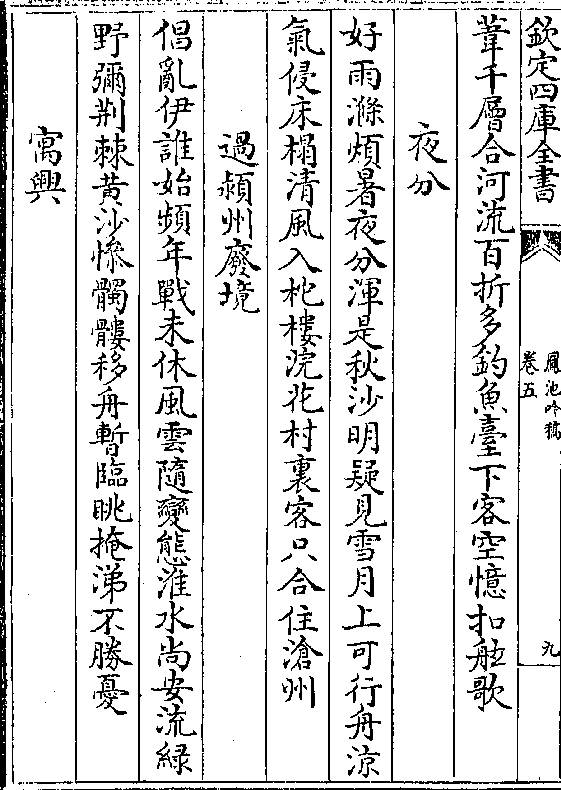 欽定四庫全書
鳳池吟稿
卷五
九
葦千層合河流百折多釣魚臺下客空憶扣舷歌
夜分
好雨滌煩暑夜分渾是秋沙明疑見雪月上可行舟涼
氣侵床榻清風入柁樓浣花村裏客只合住滄州
過潁州廢境
倡亂伊誰始頻年戰未休風雲隨變態淮水尚安流緑
野彌荆棘黄沙慘髑髏移舟暫臨眺掩涕不勝憂
寓興